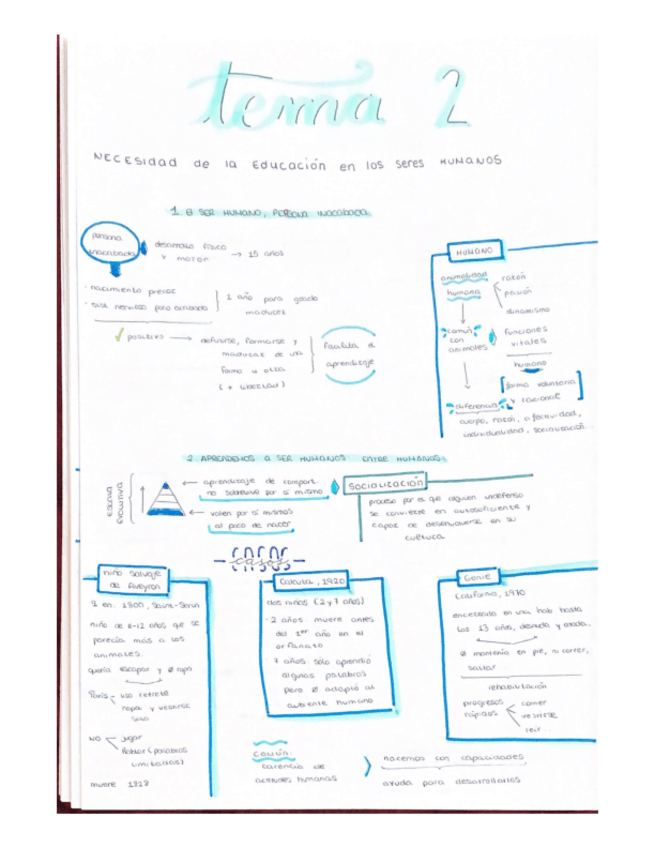 tema 2
NECESIDAD de la EDUCACIÓN en los seres HUMANOS
1. El SER HUMANO, PERSONA INACABADA
persona
inacabada
desarrollo físico
y motor → 15 años
· nacimiento precoz
1 año para grado
madurez
✓ positivo → definirse, formarse y
madurar de una
forma u otra
(+ libertad)
facilita el
aprendizaje
HUMANO
animalidad
humana
razón
pasión
dinamismo
común
con
animales
funciones
vitales
humano
forma voluntaria
y racional
diferencia
cuerpo, razón, afectividad,
individualidad, socialización...
2. APRENDEMOS A SER HUMANOS ENTRE HUMANOS.
ESCALA
EVOLUTIVA
← aprendizaje de comport.
no sobrevive por sí mismo
← valen por sí mismos
al poco de nacer
SOCIALIZACIÓN
proceso por el que alguien indefenso
se convierte en autosuficiente y
capaz de desenvolverse en su
cultura.
casos
niño salvaje
de Aveyron
en 1800, Saint-Sernin
niño de 11-12 años que se
parecía más a los
animales.
quería escapar y Ø ropa
París - uso retrete
ropa y vestirse
solo
NO
jugar
hablar (palabras
limitadas)
muere 1828
Calcuta, 1920
dos niñas (2 y 7 años)
· 2 años muere antes
del 1er año en el
orfanato
7 años sólo aprendió
algunas palabras
pero Ø adaptó al
ambiente humano
Genie
California, 1970
encerrada en una hab hasta
los 13 años, desnuda y atada.
Ø mantenía en pie, ni correr,
saltar
rehabilitación
progresos
rápidos
comer
vestirse
reír...
COMÚN:
carencia de
actitudes humanas
nacemos con capacidades
ayuda para desarrollarlas